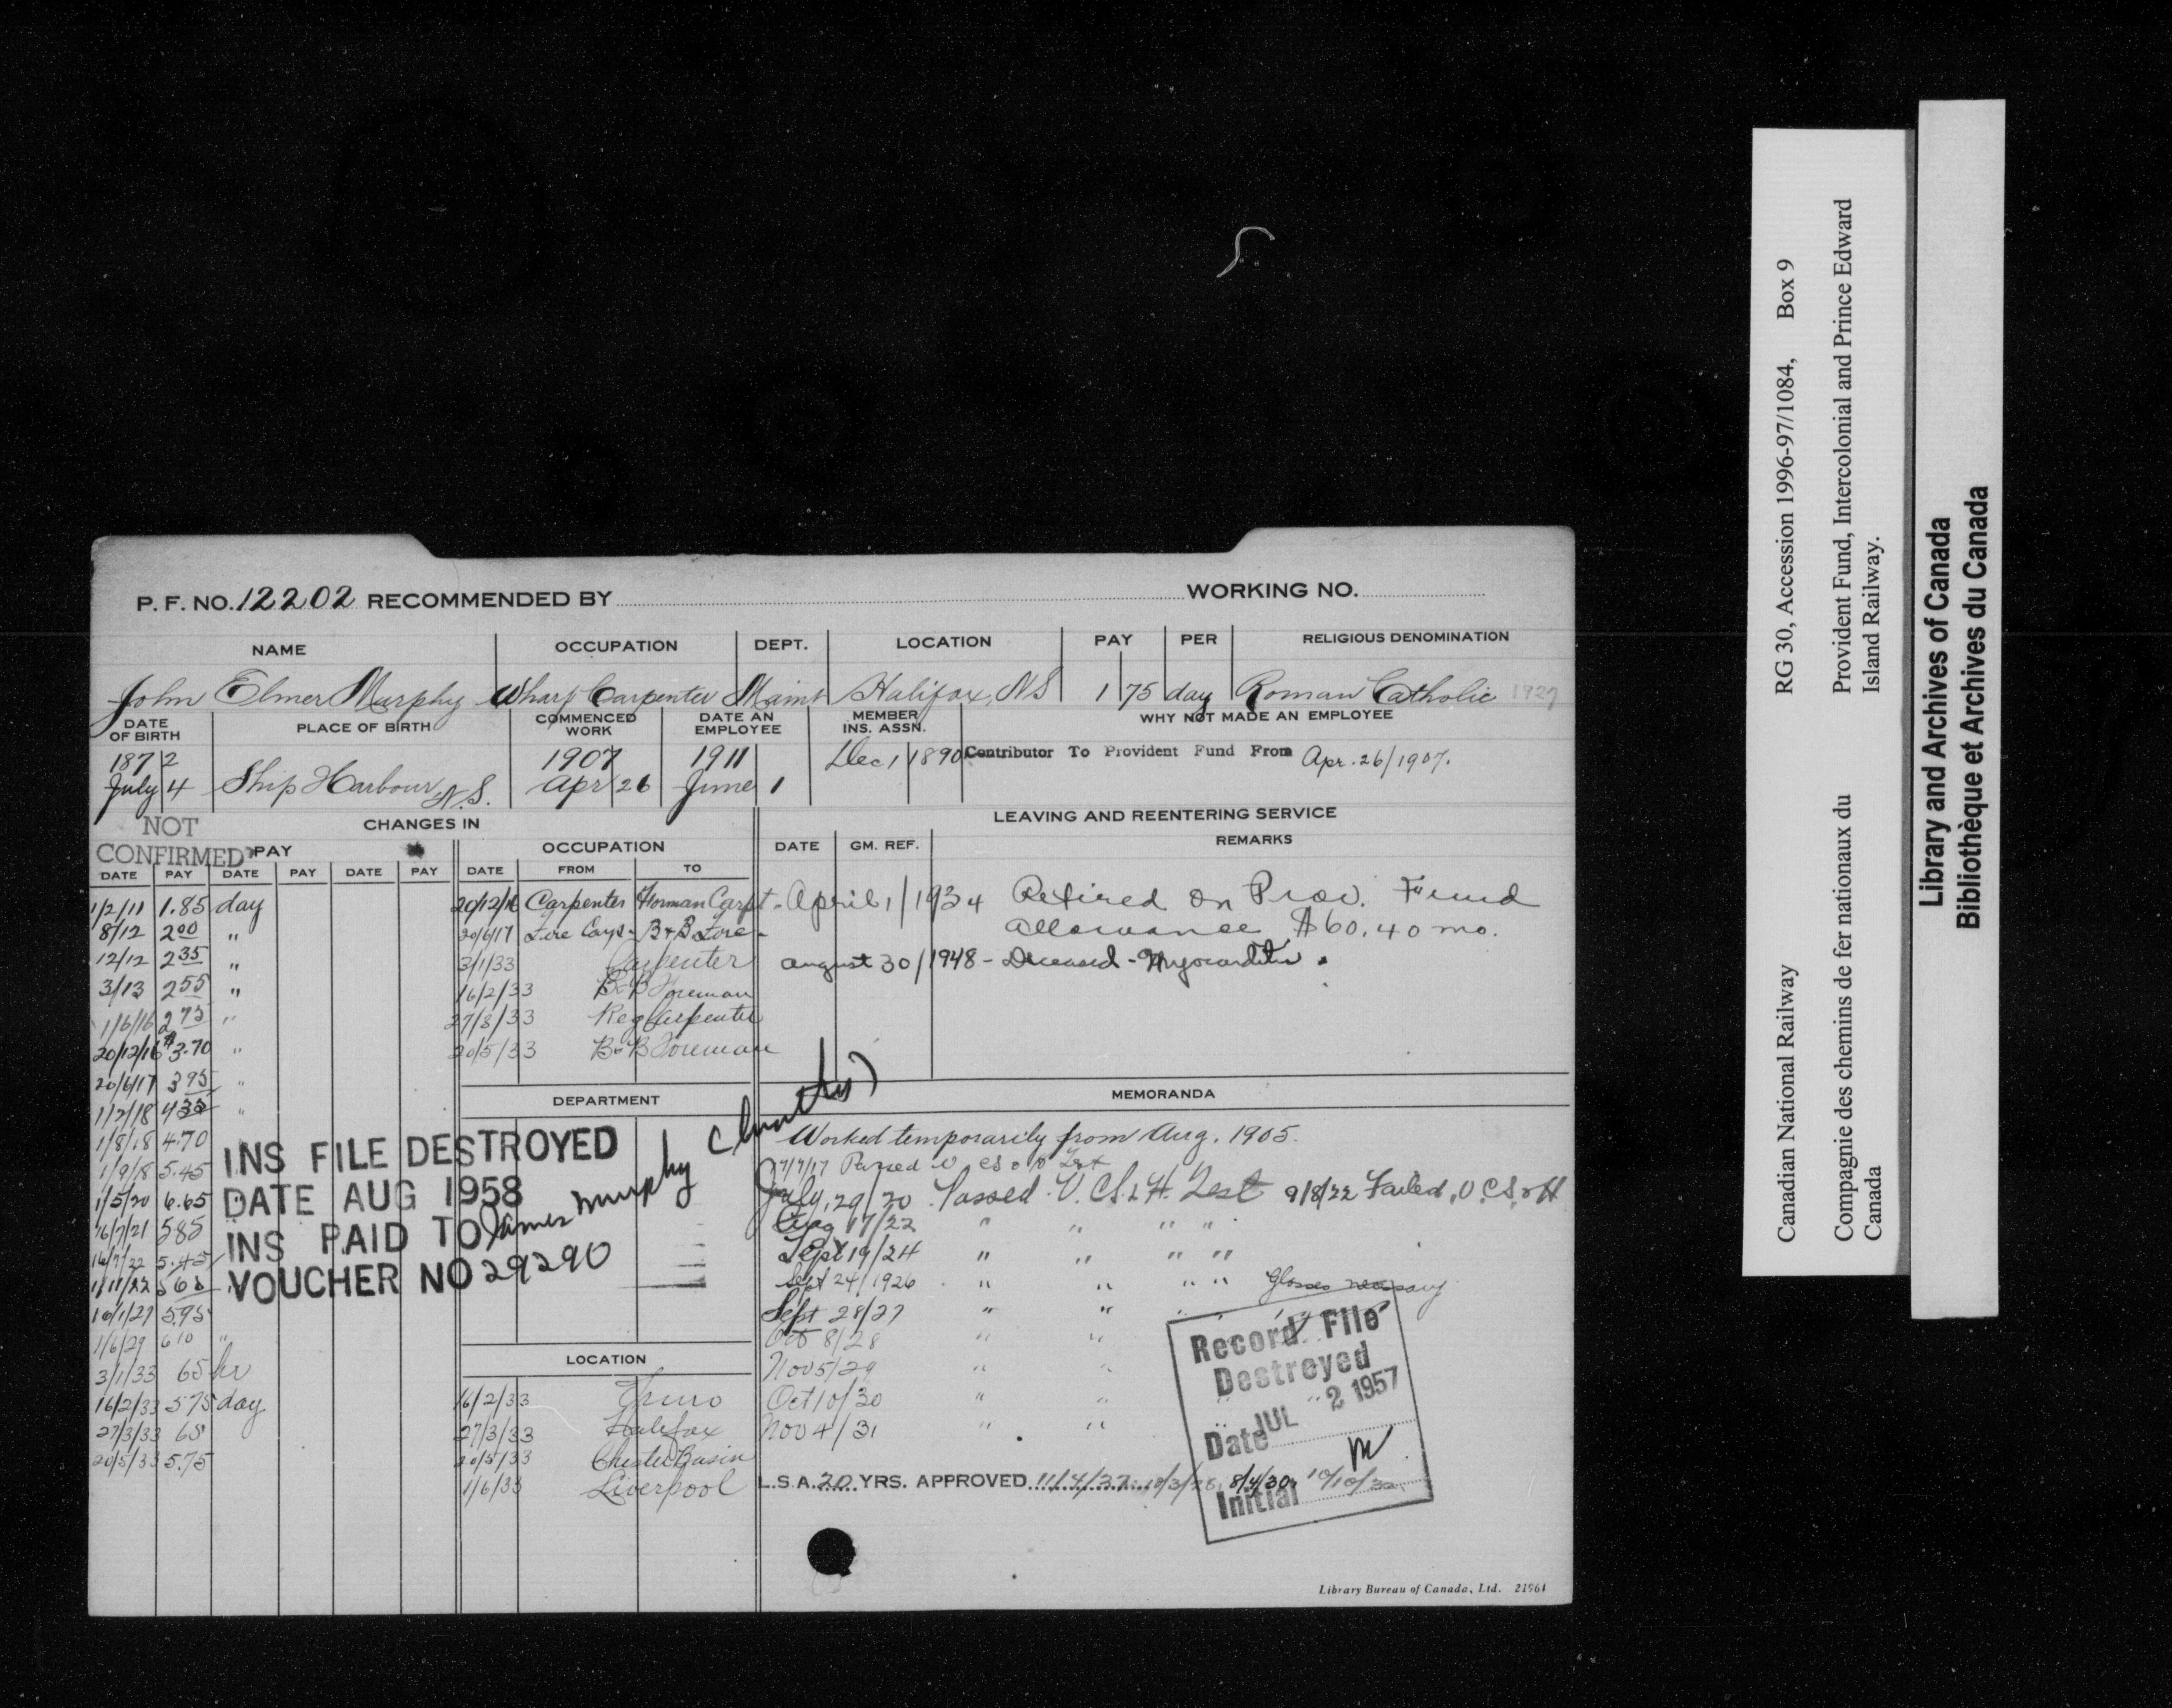 P. F. NO. 12202 RECOMMENDED BY WORKING NO.
NAME OCCUPATION DEPT. LOCATION PAY PER RELIGIOUS DENOMINATION
John Elmer Murphy Wharf Carpenter Maint Halifax, NS 1 75 day Roman Catholic 1927
DATE OF BIRTH PLACE OF BIRTH COMMENCED WORK DATE AN EMPLOYEE MEMBER INS. ASSN. WHY NOT MADE AN EMPLOYEE
1872 1907 1911 Dec 1 1890 Contributor To Provident Fund From Apr. 26/1907.
July 4 Ship Harbour N.S. Apr 26 June 1
NOT CONFIRMED
CHANGES IN
PAY
DATE PAY DATE PAY DATE PAY
1/2/11 1.85 day
8/12 2 00 "
12/12 2 35 "
3/13 2 55 "
1/6/16 2 75 "
20/12/16 $3.70 "
20/6/17 3 95 "
1/2/18 4 35 "
1/8/18 4.70
1/9/18 5.45
1/5/20 6.65 "
16/7/21 5 85
16/7/22 5.45
1/11/22 5 6
16/1/27 5.95
1/6/29 6 10 "
3/1/33 65 hr
16/2/33 5 75 day
27/3/33 65
20/5/33 5.75
INS FILE DESTROYED
DATE AUG 1958
INS PAID TO James Murphy
VOUCHER NO 29290
OCCUPATION
DATE FROM TO
20/12/16 Carpenter Forman Carpt.
20/6/17 B & B Fore.
3/1/33 Carpenter
16/2/33 B&B Foreman
27/3/33 Reg Carpenter
20/5/33 B&B Foreman
DEPARTMENT
LOCATION
16/2/33 Truro
27/3/33 Halifax
20/5/33 Chester Basin
1/6/33 Liverpool
LEAVING AND REENTERING SERVICE
DATE GM. REF. REMARKS
April 1/1934 Retired on Prov. Fund
allowance $60.40 mo.
August 30/1948 - Deceased - Myocarditis.
MEMORANDA
Worked temporarily from Aug. 1905.
7/7/17 Passed V CS & H Test
July, 29/20 Passed V. C.S. & H. Test 9/8/22 Failed, V C.S. & H
Aug 17/22 " " " "
Sept 19/24 " " " "
Sept 24/1926 " " " " Glasses necessary
Sept 28/27 " "
Oct 8/28 " "
Nov 5/29 " "
Oct 10/30 " "
Nov 4/31 " "
Record File
Destroyed
Date JUL 2 1957
Initial
L.S.A. 20 YRS. APPROVED 11/4/27 8/4/30
Library Bureau of Canada, Ltd. 21961
Canadian National Railway RG 30, Accession 1996-97/1084, Box 9
Compagnie des chemins de fer nationaux du Provident Fund, Intercolonial and Prince Edward
Canada Island Railway.
Library and Archives of Canada
Bibliothèque et Archives du Canada